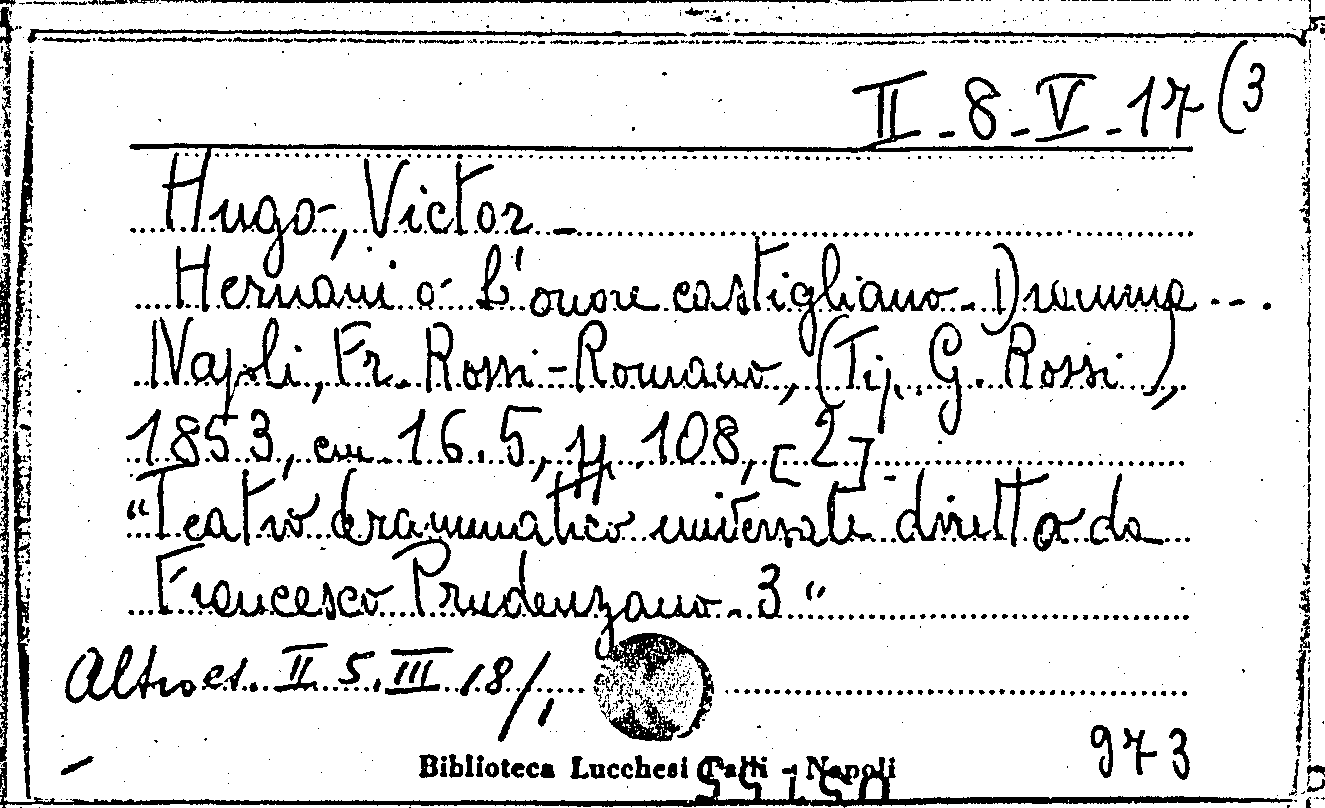 II-8-V-17(3
Hugo, Victor -
Hernani o L'onore castigliano - Dramma ...
Napoli, Fr. Rossi-Romano, (Tip. G. Rossi),
1853, cm. 16.5, pp. 108, [2] -
"Teatro drammatico universale diretto da
Francesco Prudenzano - 3"
Altro es. II 5. III 18/1
973
Biblioteca Lucchesi Palli - Napoli